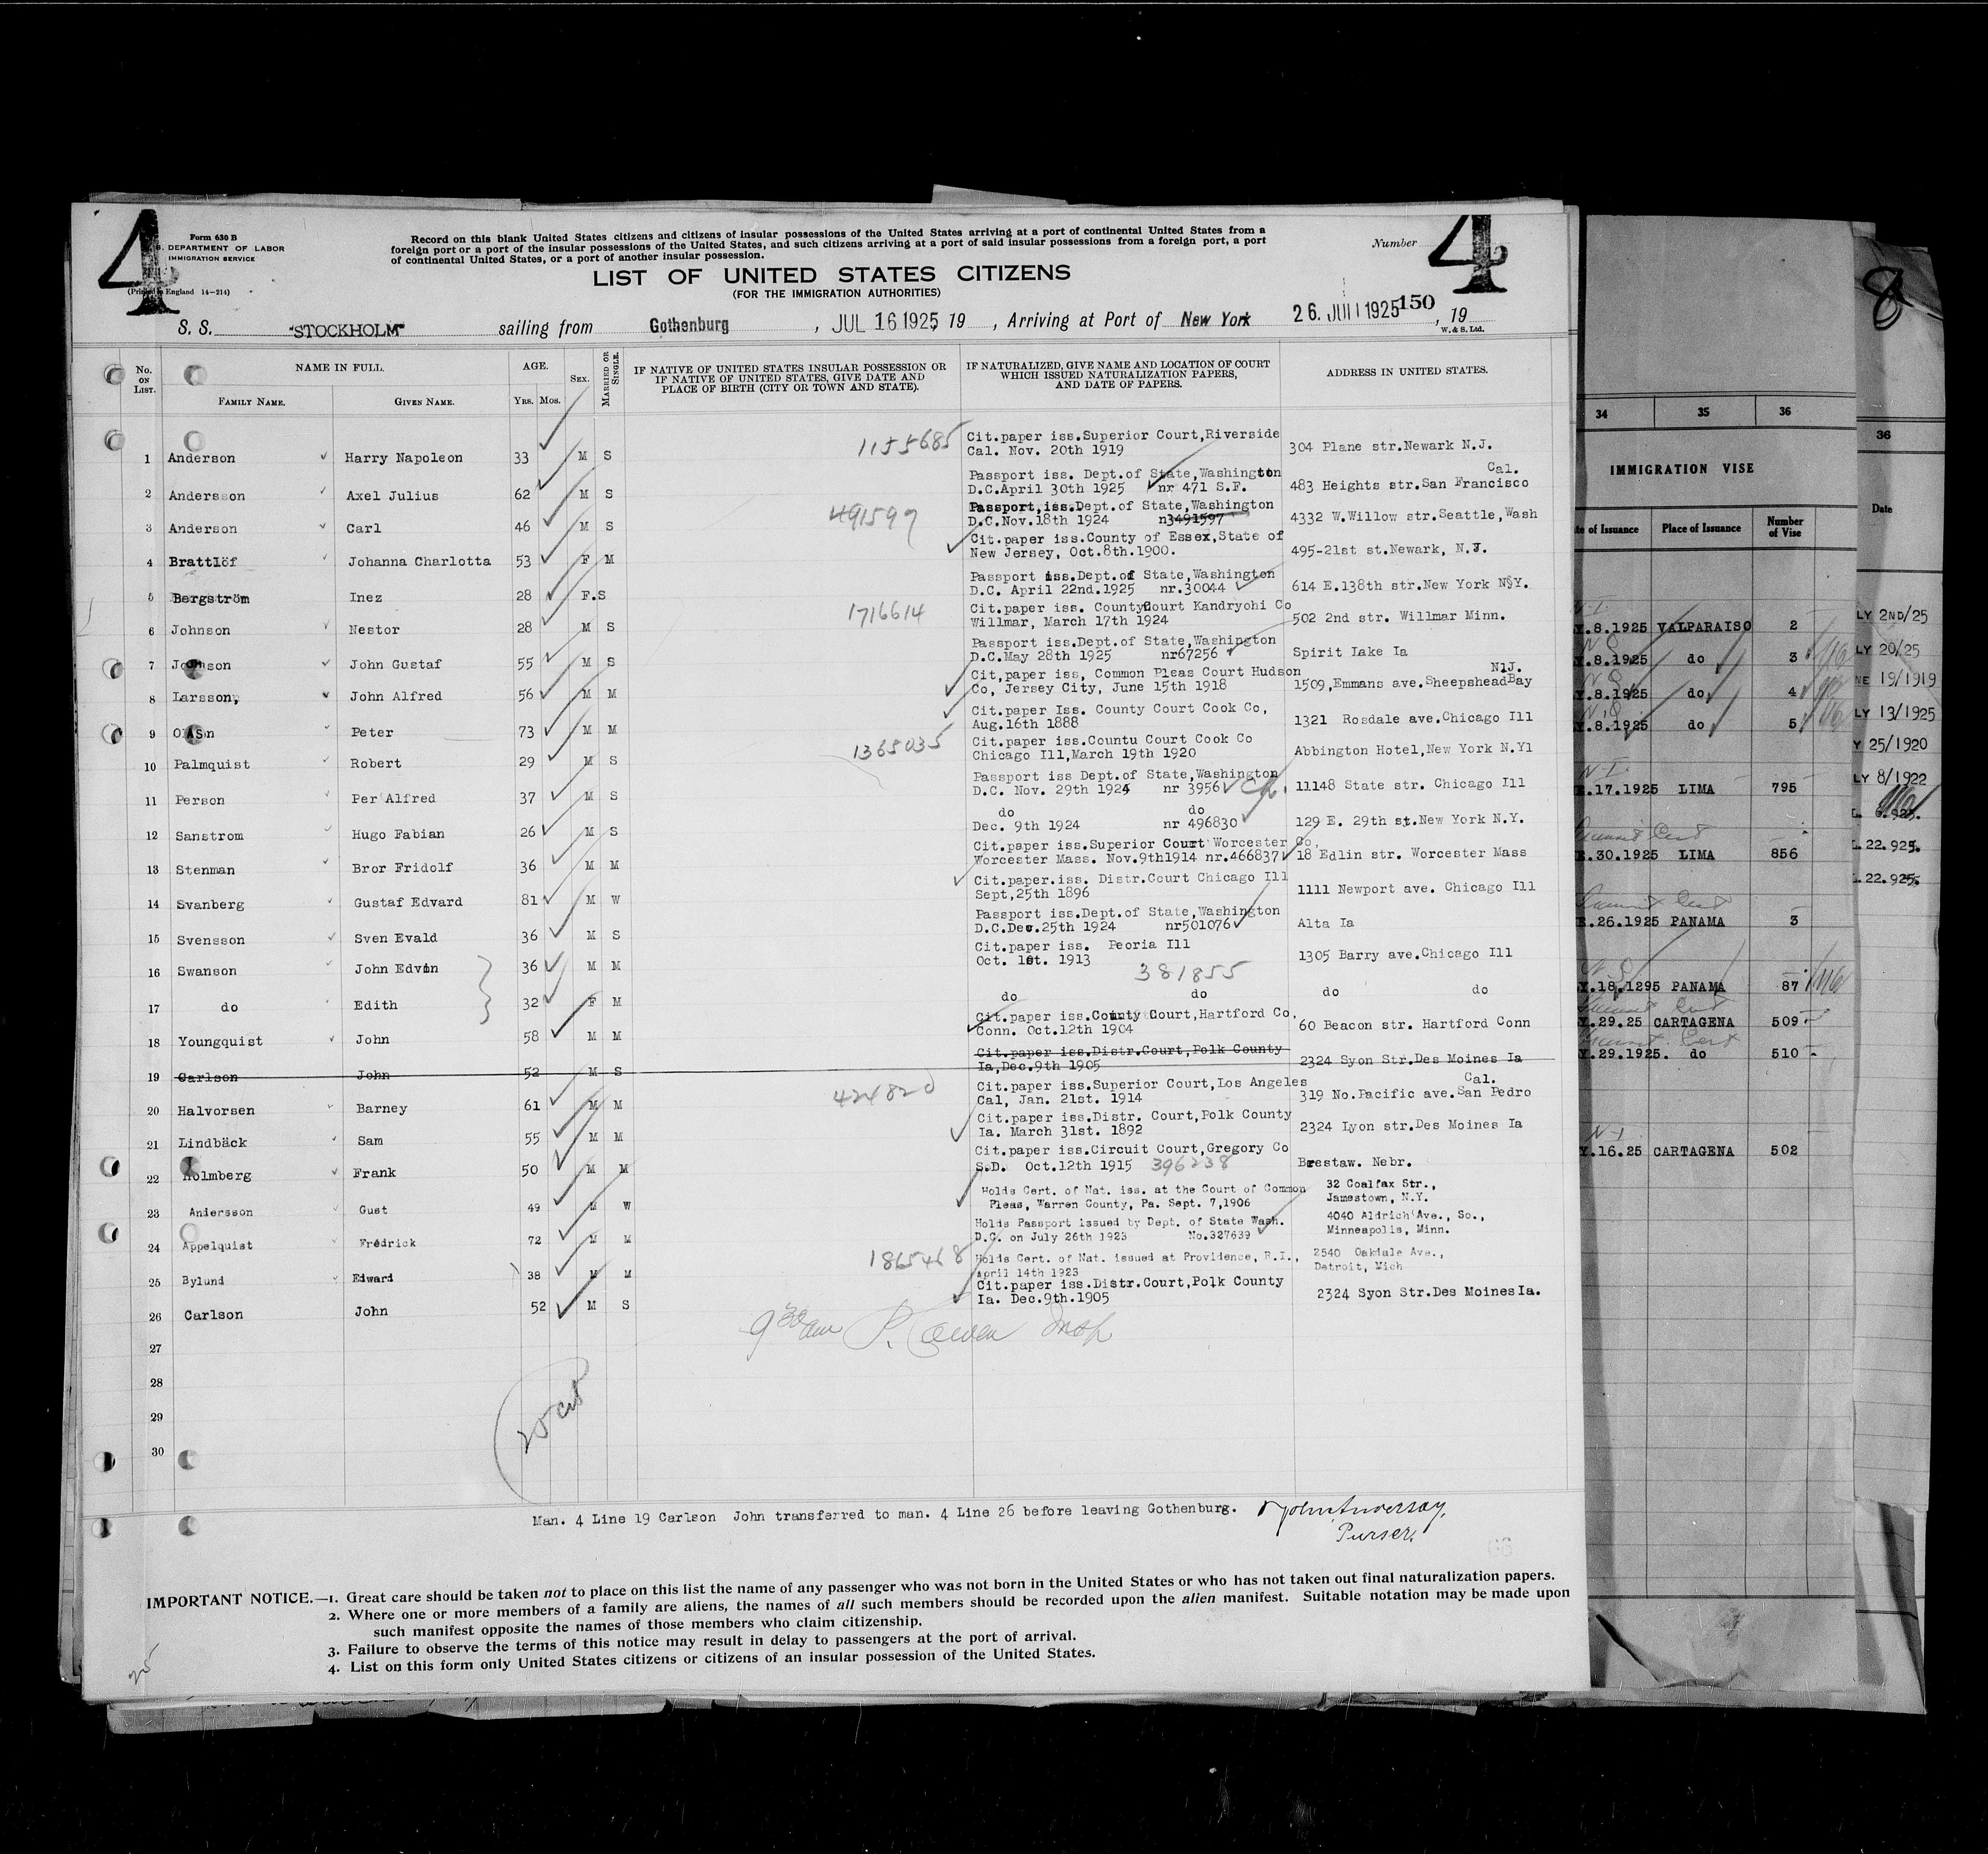 4
Form 630 B
S. DEPARTMENT OF LABOR
IMMIGRATION SERVICE
(Printed in England 14-214)
Record on this blank United States citizens and citizens of insular possessions of the United States arriving at a port of continental United States from a
foreign port or a port of the insular possessions of the United States, and such citizens arriving at a port of said insular possessions from a foreign port, a port
of continental United States, or a port of another insular possession.
Number
4
LIST OF UNITED STATES CITIZENS
(FOR THE IMMIGRATION AUTHORITIES)
S. S. "STOCKHOLM" sailing from Gothenburg, JUL 16 1925 19 , Arriving at Port of New York 26. JUL 1925 150, 19
W. & S. Ltd.
No. ON LIST. NAME IN FULL. AGE. SEX. MARRIED OR SINGLE. IF NATIVE OF UNITED STATES INSULAR POSSESSION OR IF NATIVE OF UNITED STATES, GIVE DATE AND PLACE OF BIRTH (CITY OR TOWN AND STATE). IF NATURALIZED, GIVE NAME AND LOCATION OF COURT WHICH ISSUED NATURALIZATION PAPERS, AND DATE OF PAPERS. ADDRESS IN UNITED STATES.
FAMILY NAME. GIVEN NAME. YRS. MOS.
1 Anderson Harry Napoleon 33 M S 1155685 Cit.paper iss.Superior Court,Riverside Cal. Nov. 20th 1919 304 Plane str.Newark N.J.
2 Andersson Axel Julius 62 M S Passport iss. Dept.of State,Washington D.C.April 30th 1925 nr 471 S.F. 483 Heights str.San Francisco Cal.
3 Anderson Carl 46 M S 491597 Passport,iss.Dept.of State,Washington D.C.Nov.18th 1924 n3491597 4332 W.Willow str.Seattle,Wash
4 Brattlöf Johanna Charlotta 53 F M Cit.paper iss.County of Essex,State of New Jersey, Oct.8th.1900. 495-21st st.Newark, N.J.
5 Bergström Inez 28 F.S Passport iss.Dept.of State,Washington D.C. April 22nd.1925 nr.30044 614 E.138th str.New York N§Y.
6 Johnson Nestor 28 M S 1716614 Cit.paper iss. County Court Kandryohi Co Willmar, March 17th 1924 502 2nd str. Willmar Minn.
7 Johnson John Gustaf 55 M S Passport iss.Dept.of State,Washington D.C.May 28th 1925 nr67256 Spirit Lake Ia
8 Larsson, John Alfred 56 M M Cit,paper iss, Common Pleas Court Hudson Co, Jersey City, June 15th 1918 1509,Emmans ave.SheepsheadBay N1J.
9 Olson Peter 73 M M Cit.paper Iss. County Court Cook Co, Aug.16th 1888 1321 Rosdale ave.Chicago Ill
10 Palmquist Robert 29 M S 1365035 Cit.paper iss.Countu Court Cook Co Chicago Ill,March 19th 1920 Abbington Hotel,New York N.Y1
11 Person Per Alfred 37 M S Passport iss Dept.of State,Washington D.C. Nov. 29th 1924 nr 3956 11148 State str. Chicago Ill
12 Sanstrom Hugo Fabian 26 M S do do Dec. 9th 1924 nr 496830 129 E. 29th st.New York N.Y.
13 Stenman Bror Fridolf 36 M M Cit.paper iss.Superior Court Worcester Co, Worcester Mass. Nov.9th1914 nr.466837 18 Edlin str. Worcester Mass
14 Svanberg Gustaf Edvard 81 M W Cit.paper.iss. Distr.Court Chicago Ill Sept,25th 1896 1111 Newport ave. Chicago Ill
15 Svensson Sven Evald 36 M S Passport iss.Dept.of State,Washington D.C.Dec.25th 1924 nr501076 Alta Ia
16 Swanson John Edvin 36 M M Cit.paper iss. Peoria Ill Oct. 1st. 1913 381855 1305 Barry ave.Chicago Ill
17 do Edith 32 F M do do do do
18 Youngquist John 58 M M Cit.paper iss.County Court,Hartford Co, Conn. Oct.12th 1904 60 Beacon str. Hartford Conn
19 Carlson John 52 M S Cit.paper iss.Distr.Court,Polk County Ia,Dec.9th 1905 2324 Syon Str.Des Moines Ia
20 Halvorsen Barney 61 M M 424820 Cit.paper iss.Superior Court,Los Angeles Cal, Jan. 21st. 1914 319 No.Pacific ave.San Pedro Cal.
21 Lindbäck Sam 55 M M Cit.paper iss.Distr. Court,Polk County Ia. March 31st. 1892 2324 Lyon str.Des Moines Ia
22 Holmberg Frank 50 M M Cit.paper iss.Circuit Court,Gregory Co S.D. Oct.12th 1915 396238 Brestaw. Nebr.
23 Andersson Gust 49 M W Holds Cert. of Nat. iss. at the Court of Common Pleas, Warren County, Pa. Sept. 7,1906 32 Coalfax Str., Jamestown, N.Y.
24 Appelquist Fredrick 72 M M Holds Passport issued by Dept. of State Wash. D.C. on July 26th 1923 No.327639 4040 Aldrich Ave., So., Minneapolis, Minn.
25 Bylund Edward 38 M M 1865468 Holds Cert. of Nat. issued at Providence, R.I., April 14th 1923 2540 Oakdale Ave., Detroit, Mich
26 Carlson John 52 M S Cit.paper iss.Distr.Court,Polk County Ia. Dec.9th.1905 2324 Syon Str.Des Moines Ia.
9 30 am P. Cowen Insp
27
28
29
30
Man. 4 Line 19 Carlson John transferred to man. 4 Line 26 before leaving Gothenburg.
Purser.
IMPORTANT NOTICE.—1. Great care should be taken not to place on this list the name of any passenger who was not born in the United States or who has not taken out final naturalization papers.
2. Where one or more members of a family are aliens, the names of all such members should be recorded upon the alien manifest. Suitable notation may be made upon
such manifest opposite the names of those members who claim citizenship.
3. Failure to observe the terms of this notice may result in delay to passengers at the port of arrival.
4. List on this form only United States citizens or citizens of an insular possession of the United States.
25
34 35 36
IMMIGRATION VISE
te of Issuance Place of Issuance Number of Vise
Y.8.1925 VALPARAISO 2
Y.8.1925 do 3
Y.8.1925 do 4
Y.8.1925 do 5
E.17.1925 LIMA 795
E.30.1925 LIMA 856
E.26.1925 PANAMA 3
Y.18.1295 PANAMA 87
Y.29.25 CARTAGENA 509
Y.29.1925. do 510
Y.16.25 CARTAGENA 502
8
36
Date
LY 2ND/25
LY 20/25
NE 19/1919
LY 13/1925
Y 25/1920
LY 8/1922
L. 6.925.
L.22.925.
L.22.925.